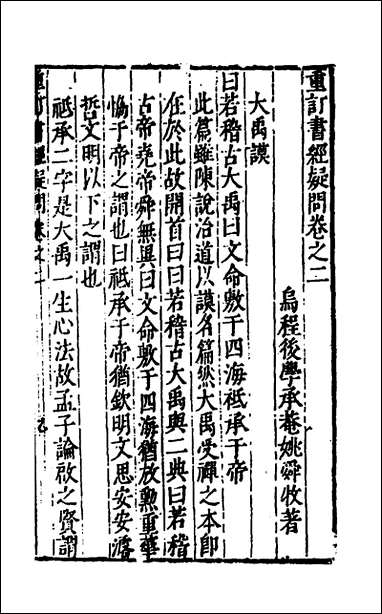 重訂書經疑問卷之二
烏程後學承菴姚舜牧著
大禹謨
曰若稽古大禹曰文命敷于四海祗承于帝
此篇雖陳說治道以謨名篇然大禹受禪之本卽
在於此故開首曰曰若稽古大禹與二典曰若稽
古帝堯帝舜無異曰文命敷于四海猶放勲重華
恊于帝之謂也曰祗承于帝猶欽明文思安安濬
哲文明以下之謂也
祗承二字是大禹一生心法故孟子論啟之賢謂
重訂書經疑問卷之二